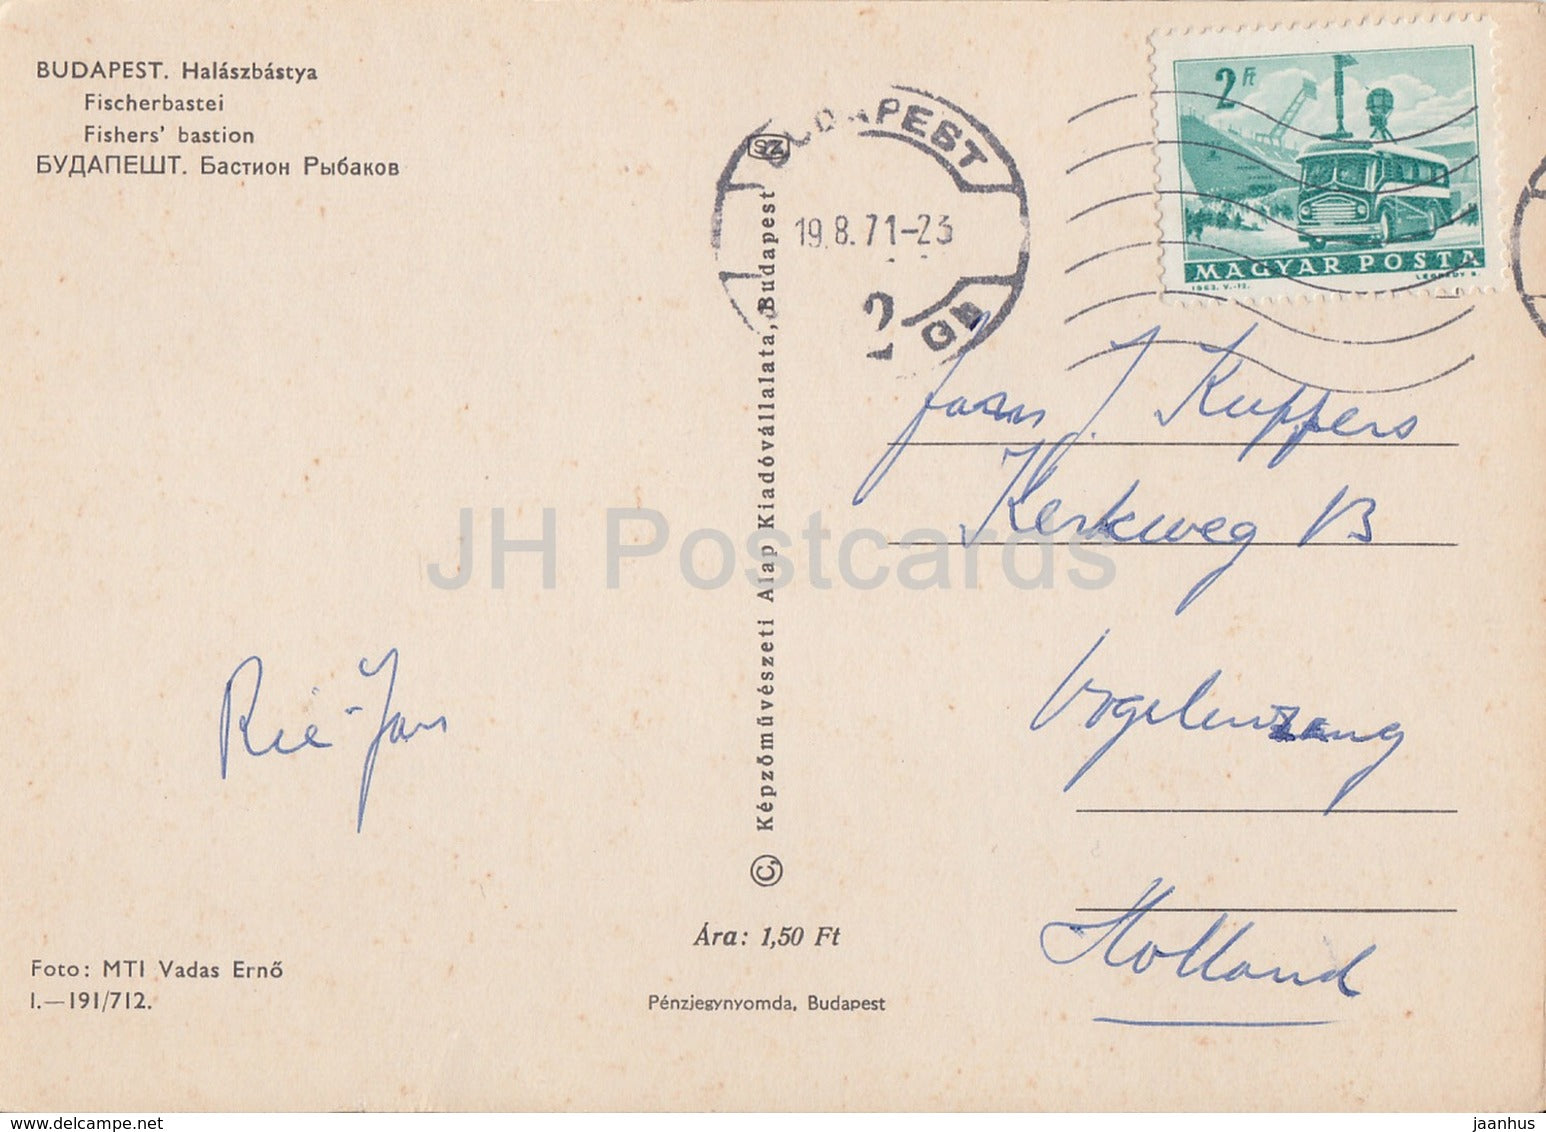 BUDAPEST. Halászbástya
Fischerbastei
Fishers' bastion
БУДАПЕШТ. Бастион Рыбаков
SZ
BUDAPEST
19.8.71-23
2
2 Ft
MAGYAR POSTA
1963. V.-12.
LÉGRÁDY S.
J. Kuppers
Kerkweg 13
Vogelenzang
Holland
Rie-Jan
© Képzőművészeti Alap Kiadóvállalata, Budapest
JH Postcards
Ára: 1,50 Ft
Foto: MTI Vadas Ernő
I.—191/712.
Pénzjegynyomda, Budapest
www.delcampe.net
jaanhus